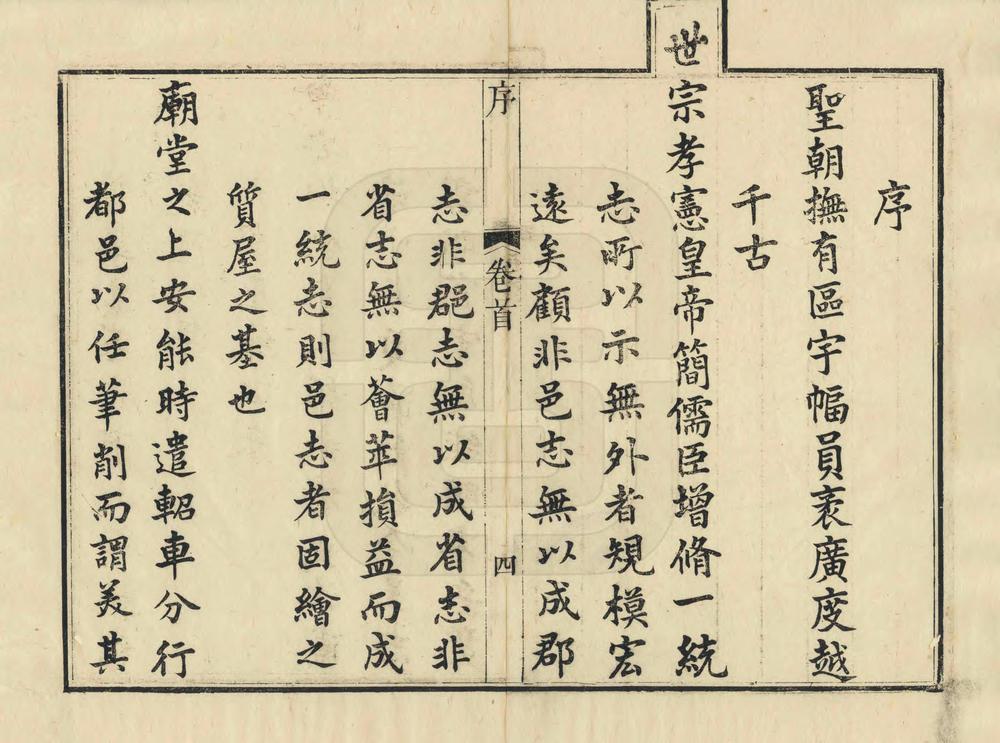 序
聖朝撫有區宇幅員袤廣度越
千古
世宗孝憲皇帝簡儒臣增脩一統
志所以示無外者規模宏
遠矣顧非邑志無以成郡
序
卷首
四
志非郡志無以成省志非
省志無以薈萃損益而成
一統志則邑志者固繪之
質屋之基也
廟堂之上安能時遣軺車分行
都邑以任筆削而謂美其